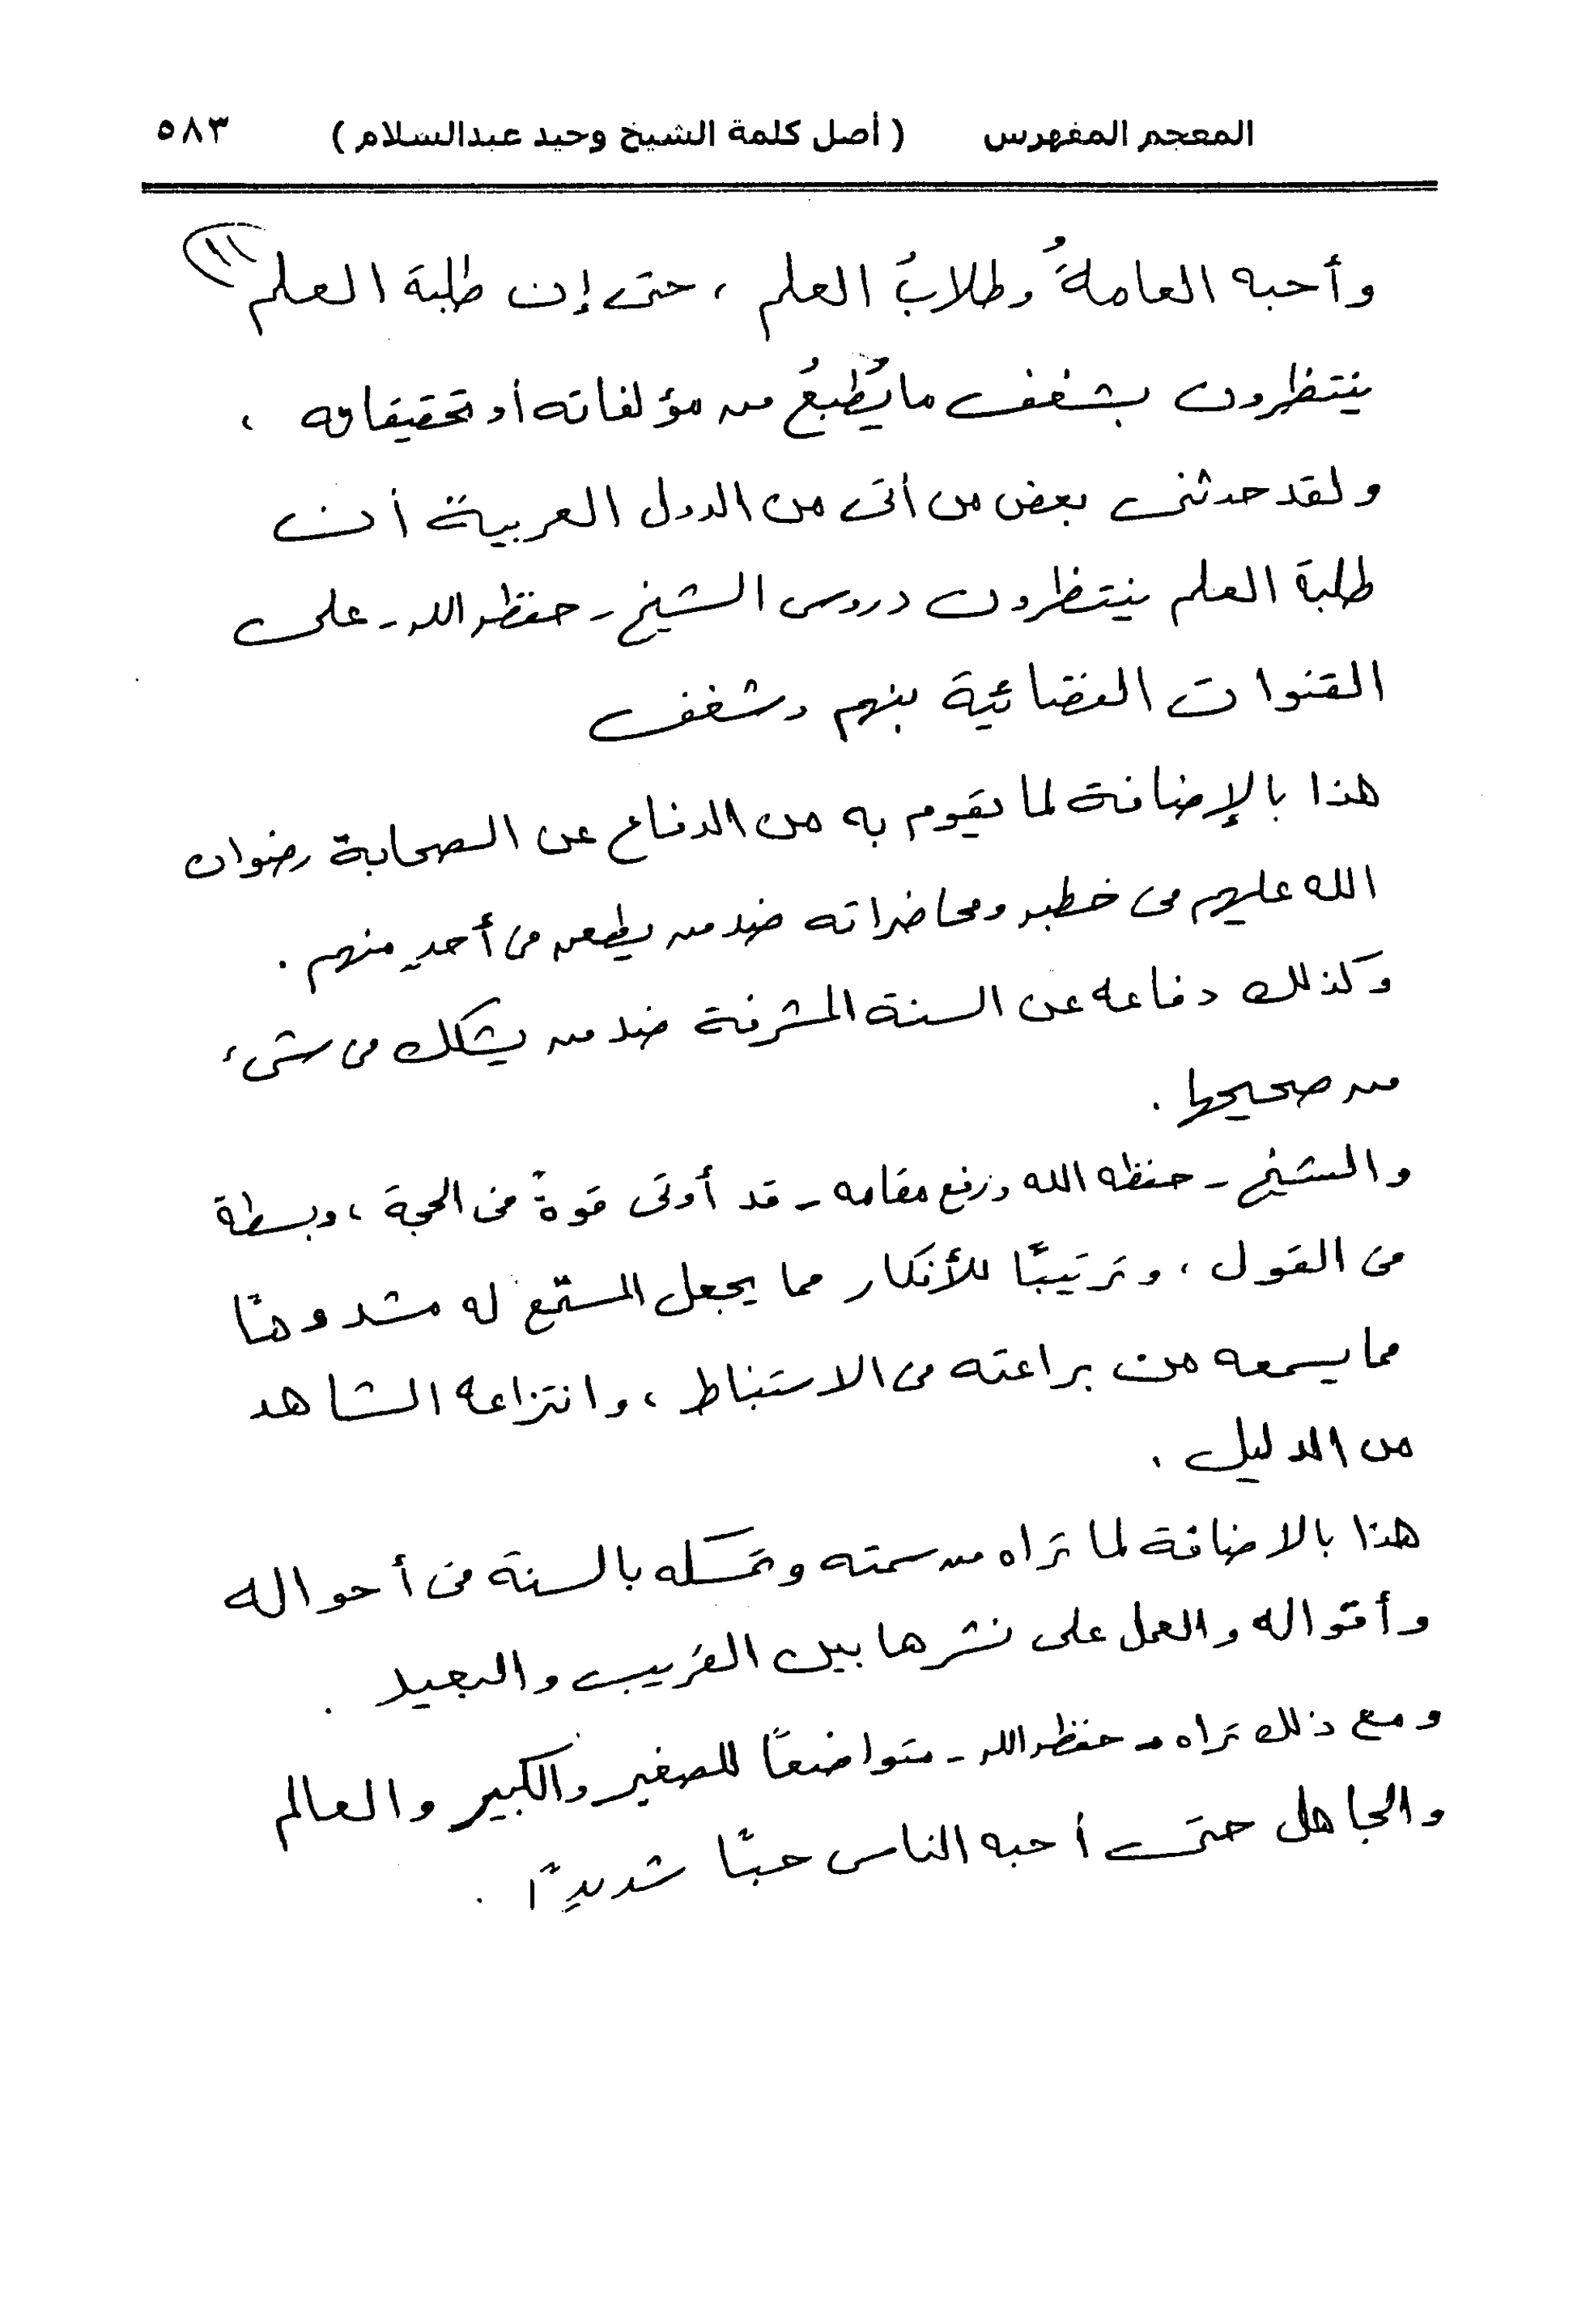 المعجم المفهرس ( أصل كلمة الشيخ وحيد عبدالسلام ) ٥٨٣
وأحبه العامةُ وطلابُ العلم ، حتى إن طلبة العلم
ينتظرون بشغف ما يُطبعُ من مؤلفاته أو تحقيقاته ،
ولقد حدثنى بعض من أتى من الدول العربية أن
طلبة العلم ينتظرون دروس الشيخ - حفظه الله - على
القنوات الفضائية بنهم وشغف
هذا بالإضافة لما يقوم به من الدفاع عن الصحابة رضوان
الله عليهم فى خطبه ومحاضراته ضد من يطعن فى أحدٍ منهم .
وكذلك دفاعه عن السنة المشرفة ضد من يشكك فى شىء
من صحيحها .
والشيخ - حفظه الله ورفع مقامه - قد أوتى قوةً فى الحجة ، وبسطة
فى القول ، وترتيبًا للأفكار مما يجعل المستمع له مشدوهًا
مما يسمعه من براعته فى الاستنباط ، وانتزاعه الشاهد
من الدليل .
هذا بالاضافة لما تراه من سمته وتمسكه بالسنة فى أحواله
وأقواله والعمل على نشرها بين القريب والبعيد .
ومع ذلك تراه - حفظه الله - متواضعًا للصغير والكبير والعالم
والجاهل حتى أحبه الناس حبًا شديدًا .